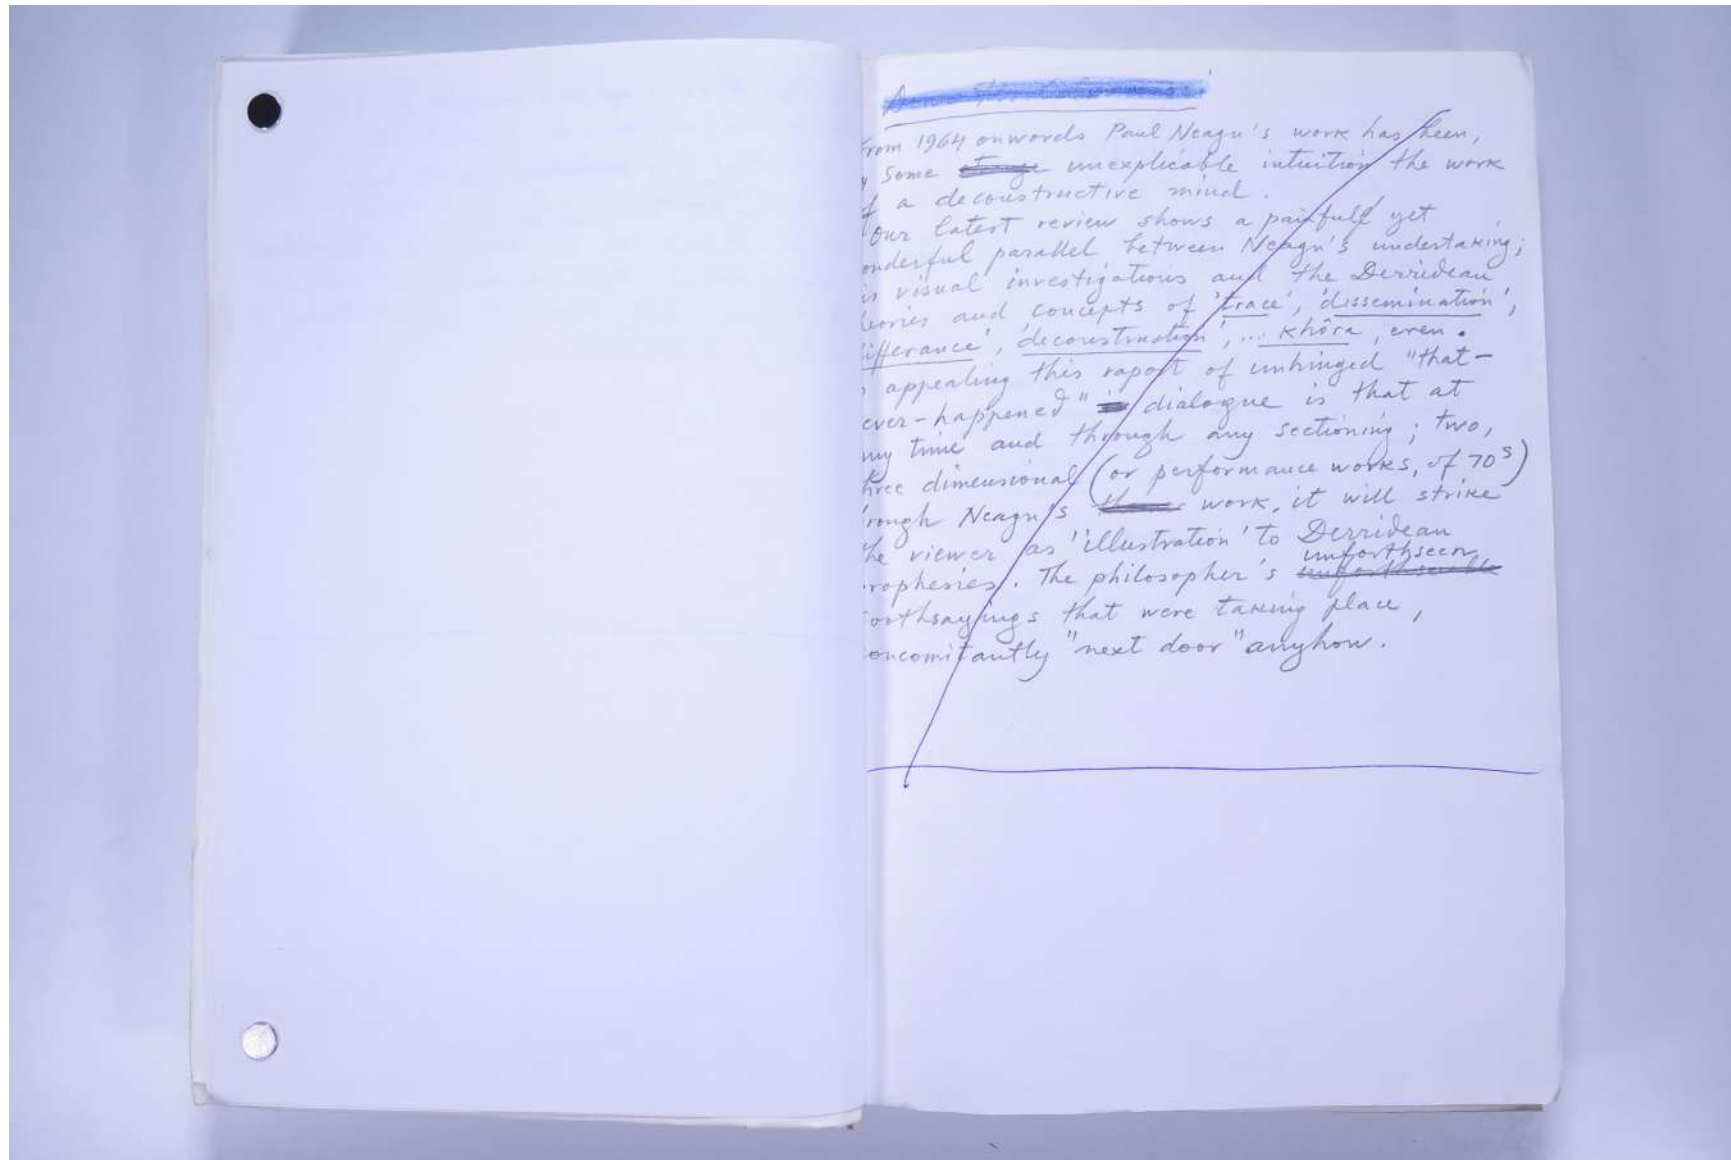 From 1964 onwords Paul Neagu's work has been,
some unexplicable intuition the work
a deconstructive mind.
Our latest review shows a painfull yet
onderful parallel between Neagu's undertaking;
visual investigations and the Derridean
eories and concepts of 'trace', 'dissemination',
ifferance', 'deconstruction', ... khôra, even.
appealing this raport of unhinged "that-
ever-happened" dialogue is that at
ny time and through any sectioning; two,
hree dimensional (or performance works, of 70s)
rough Neagu's work, it will strike
he viewer as 'illustration' to Derridean
rophesies. The philosopher's unforthseen
oothsayings that were taking place,
oncomitantly "next door" anyhow.